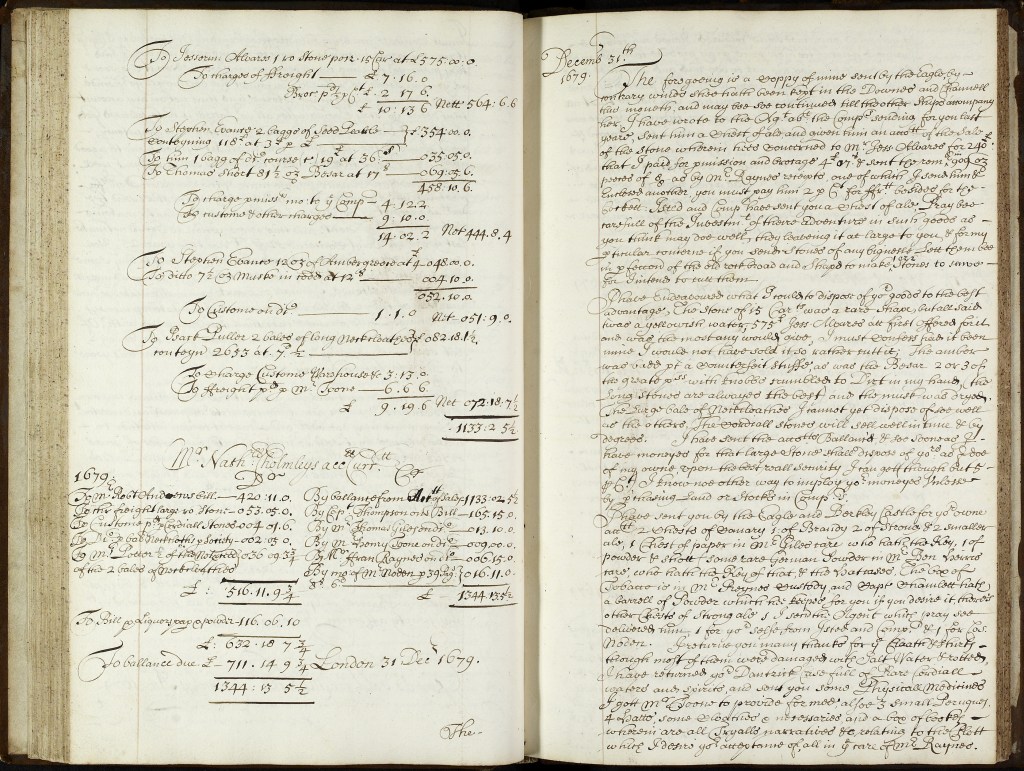 To Jesserun Alvares 1 ro Stone po 12 . 15 Car at £575 . 00 . 0
To charges of ffreight — £ 7 . 16 . 0
Broc £ . 2 17 6
£ 10 : 13 6 Nett 564 : 6 . 6
To Stephen Evance 2 baggs of Seed Pearle
Contegning 118 at 3 £ 354 00 . 0
To him 1 bagg of do course 19 at 36 s — 035 . 05 . 0
To Thomas Short 81½ oz Bezar at 17 s — 069 . 5 . 6
458 . 10 . 6
To charge mo: to ye Comp — 4 . 12 . 2
To custome & other charges — 9 . 10 . 0
14 . 02 . 2 Net 444 . 8 . 4
To Stephen Evance 12 oz of Ambergreece at 4 £ 048 . 00 . 0
To ditto 7½ oz Musk in cod at 12 s — 004 . 10 . 0
052 . 10 . 0
To Custome on do — 1 . 1 . 0 Net 051 : 9 . 0
To Bart Puller 2 bales of long Neckcloathes
conteyn 2653 at 7½ £ 082 . 18 . 1½
To Charge Custome Warehouse & 3 : 13 . 0
To ffreight pd p Mr Toone — 6 . 6 6
£ 9 . 19 . 6 Net 072 : 18 : 7½
1133 : 2 5½
Mr Nath: Cholmleys acct Curt.
1679 Dr Cr
To Mr Robt Andrews bill — 420 : 11 . 0
To the freight large ro Stone — 053 . 05 . 0
To Custome pd Cordiall Stones — 004 . 01 . 6
002 : 03 . 0
To Mr Potter ½ of 036 09 ¾
of the 2 bales of Neckcloathes
£ : 516 . 11 . 9 ¾
By ballance from Acct of Sales 1133 : 02 : 5½
By Capt Thompson on Bill — 165 . 15 . 0
By Mr Thomas — 013 . 10 . 0
By Mr Henry — 009 . 00 . 0
By Mr ffran Raynes on — 006 . 15 . 0
By of Mr Noden p 016 . 11 . 0
£ 1344 . 13 5½
To Bill 116 . 06 . 10
£ : 632 . 18 7 ¾
To ballance due £ 711 . 14 . 9 ¾ London 31 Decr 1679 .
1344 : 13 5½
The —
Decemb 31th
1679 .
The foregoeing is a Coppy of mine sent by the Eagle, by
contrary windes shee hath been kept in the Downes and Channell
this moneth, and may bee soe continued till the other Shipps accompany
her, I have wrote to the Agt abt the Comps sending for you last
yeare, sent him a Chest of ale and given him an acctt of the Sale
of the Stone wherein hees concerned to Mr Jess Alvares for 240
that I paid for pmission and
peeces of as by Mr Raynes receits, one of which I send him &
inclosed another, you must pay him 2 p Ct for besides for the
Cockett. and Comp have sent you a Chest of ale. Pray bee
carefull of the Investmt of there adventure in such goods as
you think may doe well, they leaveing it at large to you, & for my
pticular concerne if you send Stones of any bignesse lett them bee
in pfeccon of the old rock broad and Shapd to make Stones to
for I intend to cutt them.
I have Endeavoured what I could to dispose of yor goods to the best
advantage, The Stone of 15 Carts was a rare Shape, but all said
twas a yellowish water, 575 Jess Alvares att first offered for it
and was the most any would give, I must confess had it been
mine I would not have sold it soe rather cutt it, The amber
was pt a Counterfeit Stuffe, as was the Bezar 2 or 3 of
the great with knobbs crumbled to Dirt in my hand, the
long Stones are alwayes the best and the musk was dryed,
The Large bale of Neckcloathes I cannot yet dispose of soe well
as the others, The Cordiall stones will sell well in time & by
degrees. I have sent the acctts Ballanc'd & soe soone as I
have moneyes for that large Stone shall dispose of yors as I doe
of my owne upon the best reall security I can gett though but 5
p Ct, I know noe other way to imploy yor moneyes unlesse
by pchasing Land or Stocks in Comps.
I have sent you by the Eagle and Bertley Castle for yor owne
acctt 2 Chests of Canary 1 of Brandy 2 of Strong & 2 smaller
ale, 1 Chest of paper in Mr Giles care who hath the Key, 1 of
powder & shott some rare German Powder in Mr Ben Herris
care, who hath the Key of that, & the hatcases, The box of
Tobacco is in Mr Reynes Custody and Capt Chamlett hath
a barrell of Powder which hee keepes for you if you desire it, theres
other Chests of Strong ale, 1 I send the Agent which pray see
delivered him, 1 for yor selfe from and Comp, & 1 for
Noden. I returne you many thanks for ye Cloath & shirts
through most of them were damaged with Salt Water & rotted.
I have returned yor Dantzick Case full of Rare Cordiall
waters and Spirits, and sent you some Physicall Medicines
I gott Mr Toone to provide for mee, alsoe 3 small Peruques,
4 hatts, some & necessaries and a box of bookes
wherein are all Tryalls narratives & relating to the Plott
which I desire yor acceptance of, all in ye care of Mr Raynes.